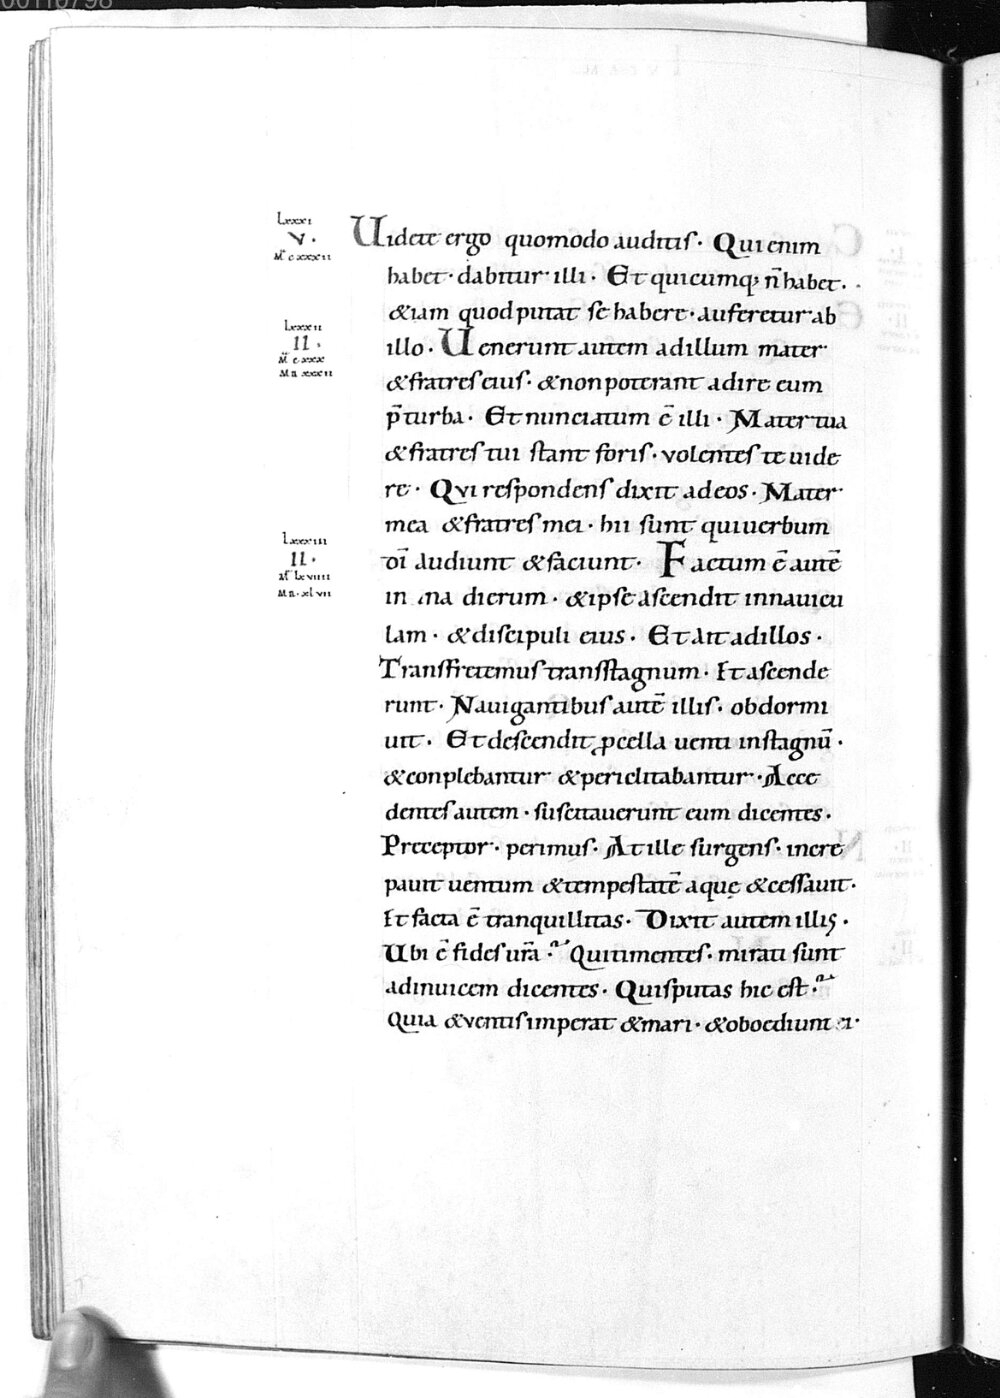 Lxxxi
V.
M̄ cxxxii
Uidete ergo quomodo auditis. Qui enim
habet. dabitur illi. Et quicumq; n̄ habet.
&iam quod putat se habere. auferetur ab
Lxxxii
II.
M̄ cxxx
Mr xxxii
illo. Uenerunt autem ad illum mater
& fratres eius. & non poterant adire eum
p̄ turba. Et nunciatum ē illi. Mater tua
& fratres tui stant foris. volentes te uide
re. Qui respondens dixit ad eos. Mater
mea & fratres mei. hii sunt qui uerbum
Lxxxiii
II.
M̄ Lxviiii
Mr. xlvii
dī audiunt & faciunt. Factum ē autē
in una dierum. & ipse ascendit in nauicu
lam. & discipuli eius. Et ait ad illos.
Transfretemus trans stagnum. Et ascende
runt. Nauigantibus autē illis. obdormi
uit. Et descendit pcella uenti in stagnū.
& conplebantur & periclitabantur. Acce
dentes autem. suscitauerunt eum dicentes.
Preceptor. perimus. At ille surgens. incre
pauit uentum & tempestatē aquę & cessauit.
Et facta ē tranquillitas. Dixit autem illis.
Ubi ē fides ur̄a. Qui timentes. mirati sunt
ad inuicem dicentes. Quis putas hic est.
Quia & ventis imperat & mari. & oboediunt ei.